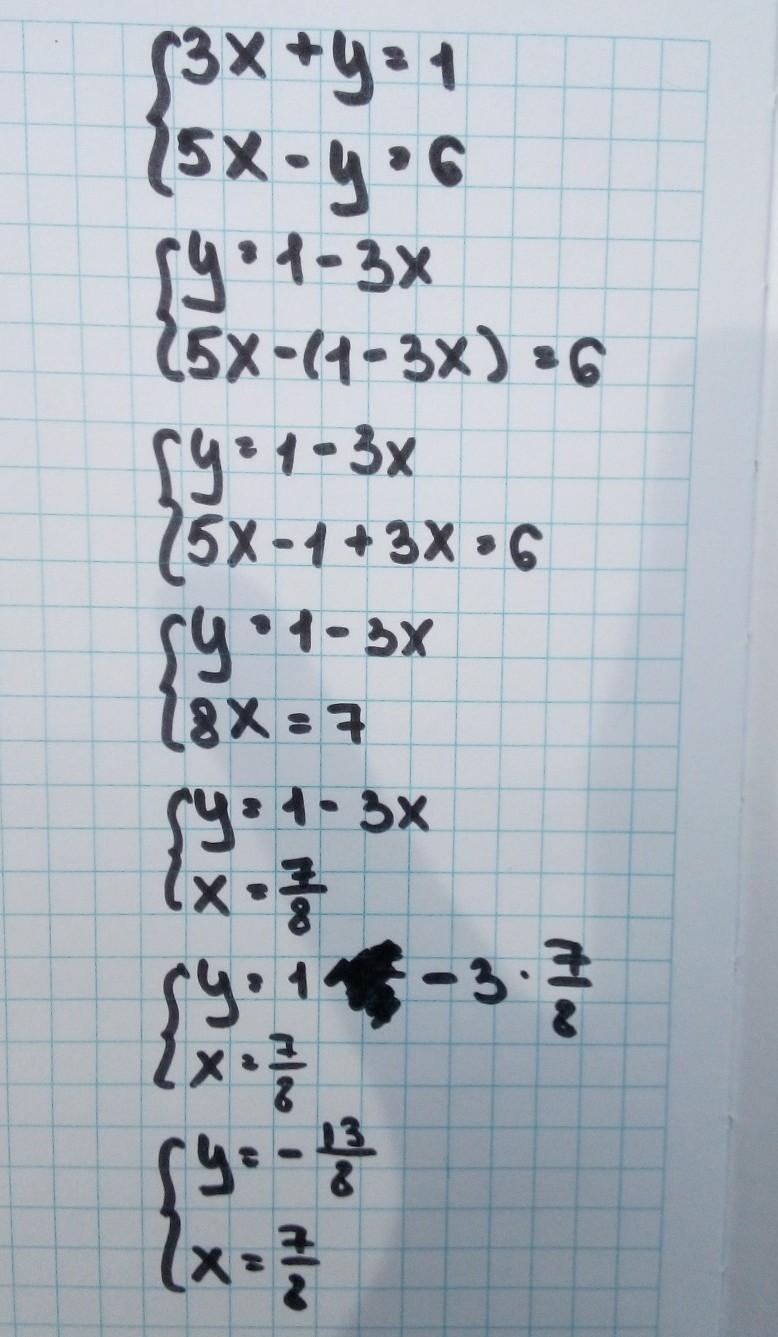 {3x + y = 1
{5x - y = 6
{y = 1 - 3x
{5x - (1 - 3x) = 6
{y = 1 - 3x
{5x - 1 + 3x = 6
{y = 1 - 3x
{8x = 7
{y = 1 - 3x
{x = 7/8
{y = 1 - 3 · 7/8
{x = 7/8
{y = - 13/8
{x = 7/8